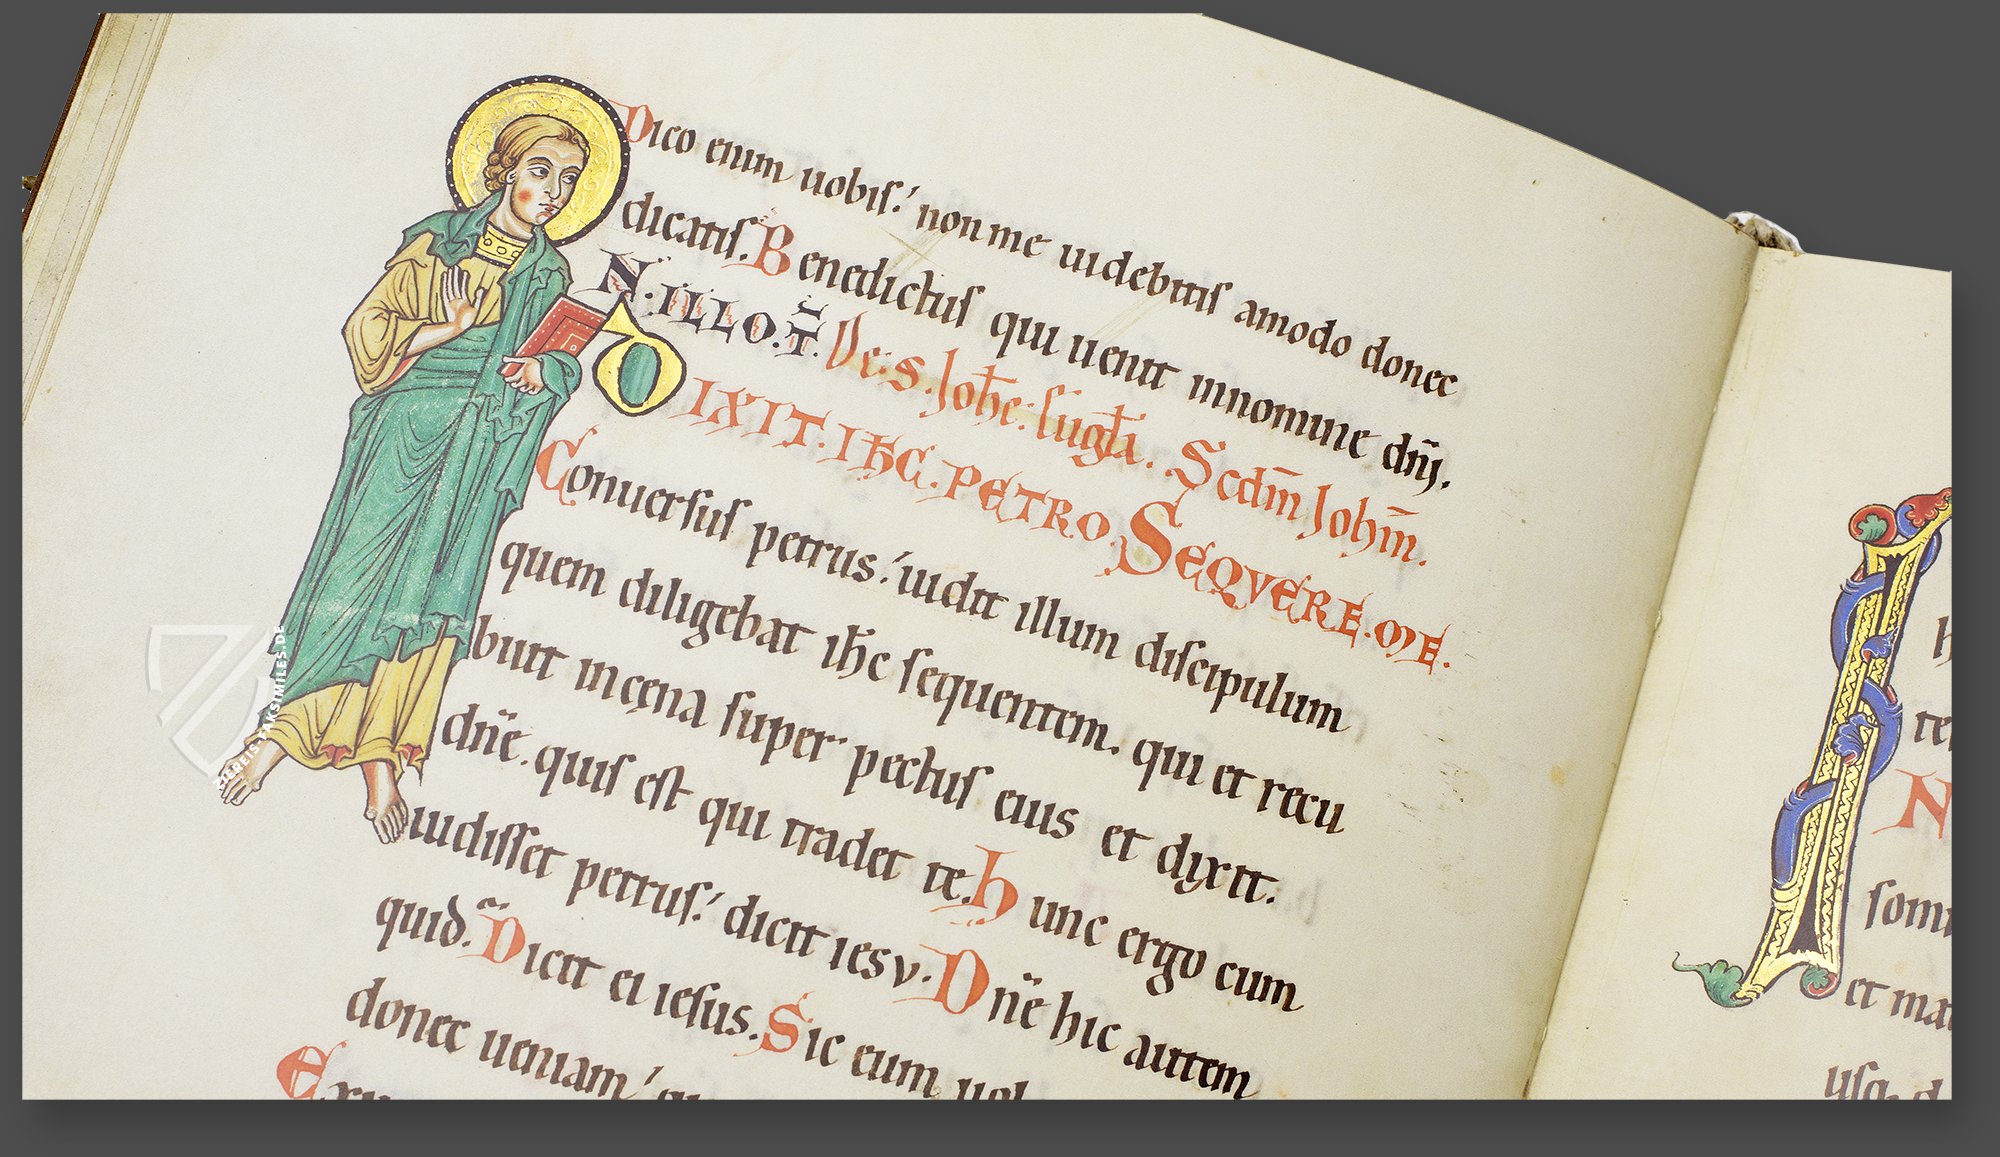 Dico enim uobis: non me uidebitis amodo donec
dicatis. Benedictus qui uenit innomine dn̄i.
N. ILLO. T̄. De. s. Joh̄e. euḡla. Scdm̄ Johm̄.
DIXIT. IH̄C. PETRO. SEQVERE. ME.
Conuersus petrus: uidit illum discipulum
quem diligebat ih̄c sequentem. qui et recu
buit incęna super pectus eius et dixit.
dn̄e. quis est qui tradet te. Hunc ergo cum
uidisset petrus: dicit iesv. Dn̄e hic autem
quid. Dicit ei iesus. Sic eum uol
donec ueniam
h
te
N
som
et ma
usq; d
ZIEREIS-FAKSIMILES.DE